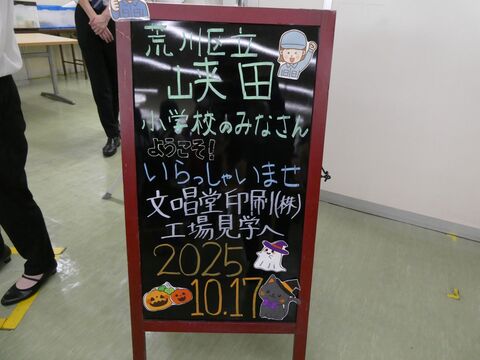 荒川区立
峡田
小学校のみなさん
ようこそ!
いらっしゃいませ
文唱堂印刷(株)
工場見学へ
2025
10.17